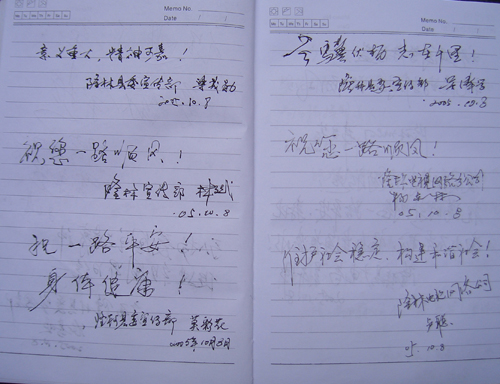 Memo No.
Date / /
意义重大，精神可嘉！
隆林县委宣传部
2005.10.8
祝您一路顺风！
隆林宣传部
05.10.8
祝一路平安！
身体健康！
隆林县委宣传部
2005年10月8日
Memo No.
Date / /
老骥伏枥 志在千里！
隆林县委宣传部
2005.10.8
祝您一路顺风！
隆林电视网络分公司
05.10.8
维护社会稳定，构建和谐社会！
隆林电视网络公司
05.10.8